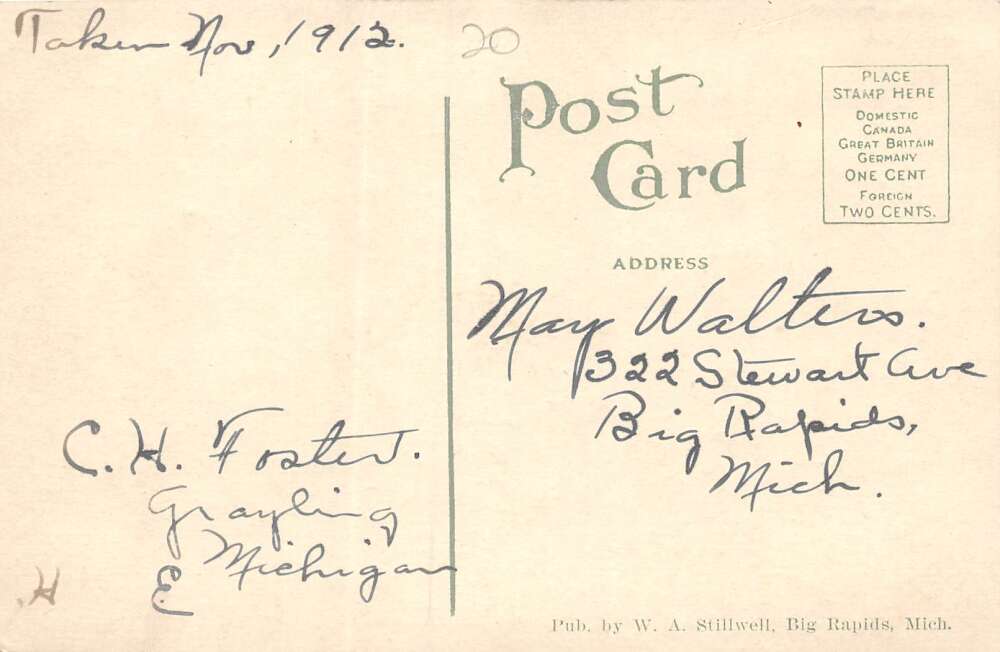 Taken Nov, 1912.
20
Post
Card
PLACE
STAMP HERE
DOMESTIC
CANADA
GREAT BRITAIN
GERMANY
ONE CENT
FOREIGN
TWO CENTS.
ADDRESS
May Walters.
322 Stewart Ave
Big Rapids,
Mich.
C. H. Foster.
Grayling
Michigan
E
H
Pub. by W. A. Stillwell, Big Rapids, Mich.